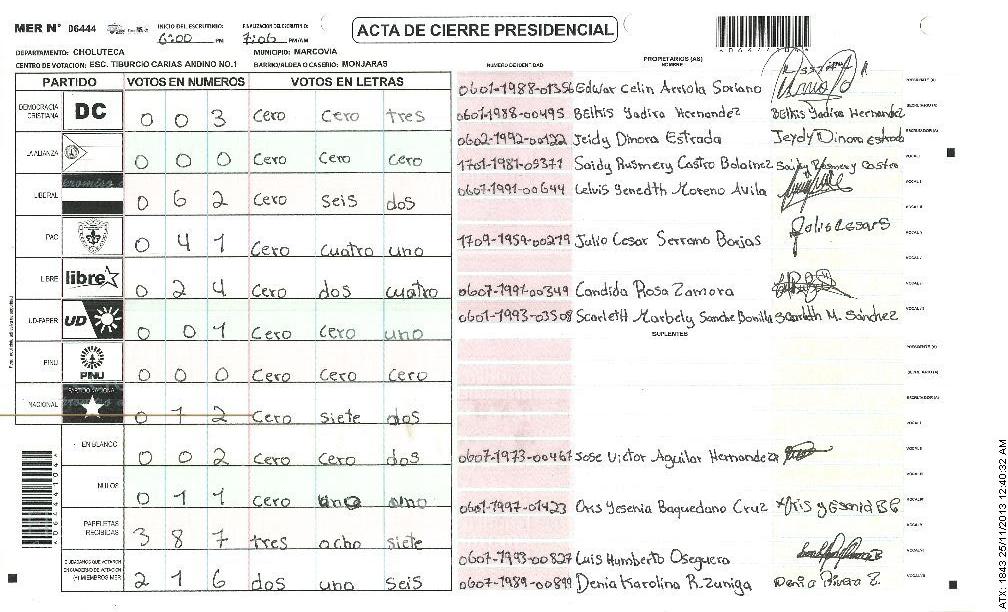 MER N° 06444 INICIO DEL ESCRUTINIO: 6:00 PM FINALIZACION DEL ESCRUTINIO: 7:06 PM/AM ACTA DE CIERRE PRESIDENCIAL
DEPARTAMENTO: CHOLUTECA MUNICIPIO: MARCOVIA
CENTRO DE VOTACION: ESC. TIBURCIO CARIAS ANDINO NO.1 BARRIO/ALDEA O CASERIO: MONJARAS
PARTIDO VOTOS EN NUMEROS VOTOS EN LETRAS
DEMOCRACIA CRISTIANA DC 0 0 3 Cero Cero tres
LA ALIANZA 0 0 0 Cero Cero cero
LIBERAL 0 6 2 Cero seis dos
PAC 0 4 1 Cero cuatro uno
LIBRE libre 0 2 4 Cero dos cuatro
UD-FAPER UD 0 0 1 Cero Cero uno
PINU PINU 0 0 0 Cero Cero Cero
NACIONAL PARTIDO NACIONAL 0 7 2 Cero siete dos
EN BLANCO 0 0 2 Cero Cero dos
NULOS 0 1 1 Cero uno uno
PAPELETAS RECIBIDAS 3 8 7 tres ocho siete
CIUDADANOS QUE VOTARON EN CUADERNO DE VOTACION (+) MIEMBROS MER 2 1 6 dos uno seis
NUMERO DE IDENTIDAD PROPIETARIOS (AS) NOMBRE
0601-1988-01356 Edwar Celin Arriola Soriano
0601-1988-00495 Belkis Yadira Hernandez Belkis Yadira Hernandez
0602-1992-00122 Jeidy Dinora Estrada Jeydy Dinora Estrada
1701-1981-05371 Saidy Rusmery Castro Bolainez
0607-1991-00644 Celvis Benedth Moreno Avila
1709-1959-00219 Julio Cesar Serrano Borjas Julio Cesar S
0607-1991-00349 Candida Rosa Zamora
0601-1993-03508 Scarleth Marbely Sanche Bonilla Scarleth M. Sánchez
SUPLENTES
0607-1973-00467 Jose Victor Aguilar Hernandez
0601-1997-01423 Oris Yesenia Baquedano Cruz
0607-1993-00827 Luis Humberto Oseguera
0607-1989-00899 Denia Karolina R. Zuniga Denia Rivera Z.
ATX: 1843 25/11/2013 12:40:32 AM